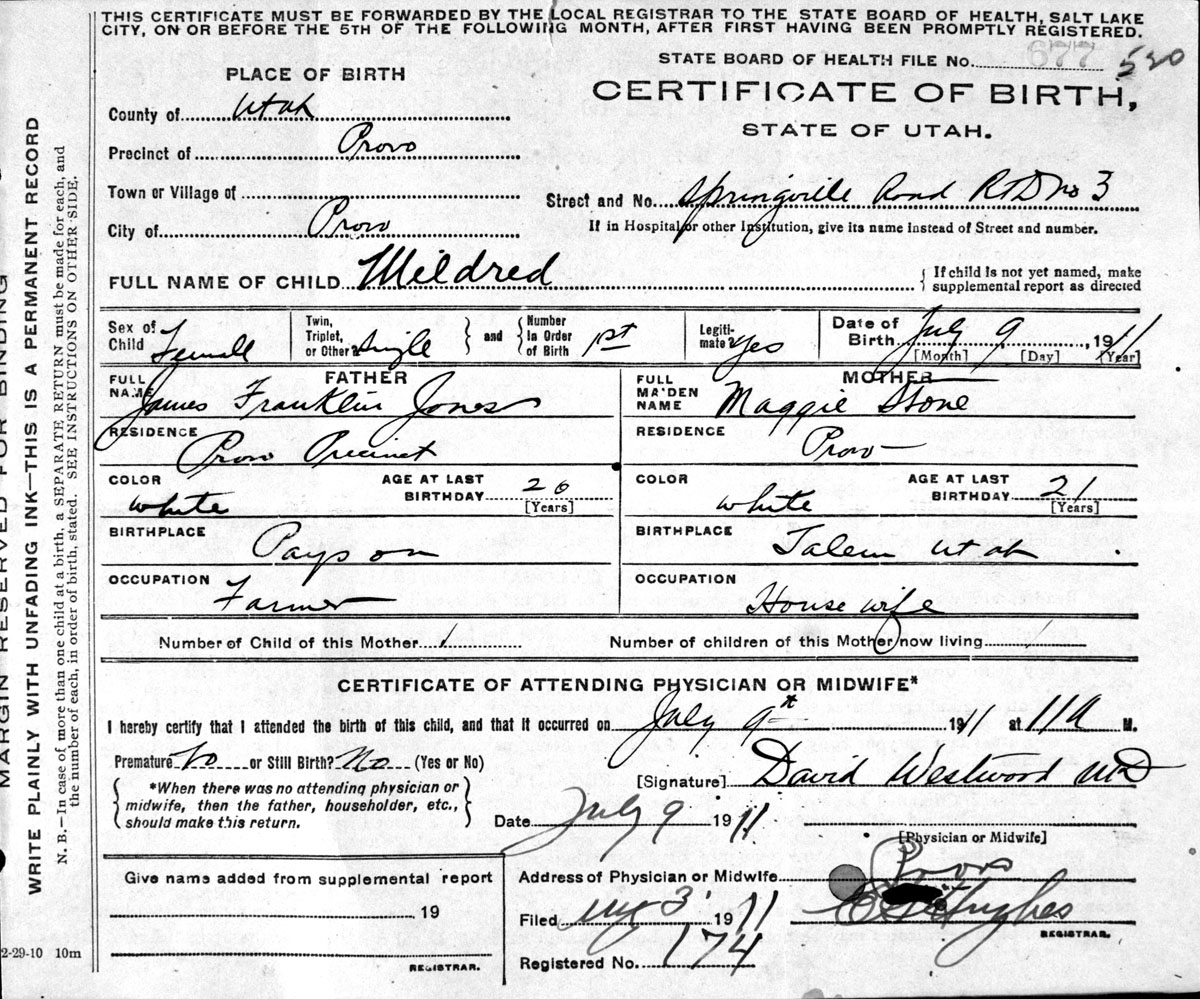 THIS CERTIFICATE MUST BE FORWARDED BY THE LOCAL REGISTRAR TO THE STATE BOARD OF HEALTH, SALT LAKE
CITY, ON OR BEFORE THE 5TH OF THE FOLLOWING MONTH, AFTER FIRST HAVING BEEN PROMPTLY REGISTERED.
STATE BOARD OF HEALTH FILE No. 677 520
PLACE OF BIRTH
CERTIFICATE OF BIRTH,
STATE OF UTAH.
County of Utah
Precinct of Provo
Town or Village of
Street and No. Springville Road RFD no 3
City of Provo
If in Hospital or other Institution, give its name instead of Street and number.
FULL NAME OF CHILD Mildred
{ If child is not yet named, make
supplemental report as directed
Sex of Child Femall
Twin, Triplet, or Other? Single } and { Number In Order of Birth 1st
Legitimate? Yes
Date of Birth July 9, 1911
[Month] [Day] [Year]
FATHER
FULL NAME James Franklin Jones
RESIDENCE Provo Precinct
COLOR white
AGE AT LAST BIRTHDAY 26
[Years]
BIRTHPLACE Payson
OCCUPATION Farmer
MOTHER
FULL MAIDEN NAME Maggie Stone
RESIDENCE Provo
COLOR white
AGE AT LAST BIRTHDAY 21
[Years]
BIRTHPLACE Salem Utah
OCCUPATION House wife
Number of Child of this Mother 1
Number of children of this Mother now living 1
CERTIFICATE OF ATTENDING PHYSICIAN OR MIDWIFE*
I hereby certify that I attended the birth of this child, and that it occurred on July 9th 1911 at 11 a M.
Premature No or Still Birth? No (Yes or No)
[Signature] David Westwood MD
{ *When there was no attending physician or
midwife, then the father, householder, etc.,
should make this return. }
Date July 9 1911
[Physician or Midwife]
Give name added from supplemental report
19
REGISTRAR.
Address of Physician or Midwife Provo
Filed Aug 3 1911
Hughes
REGISTRAR.
Registered No. 174
2-29-10 10m
MARGIN RESERVED FOR BINDING
WRITE PLAINLY WITH UNFADING INK—THIS IS A PERMANENT RECORD
N. B.—In case of more than one child at a birth, a SEPARATE RETURN must be made for each, and
the number of each, in order of birth, stated. SEE INSTRUCTIONS ON OTHER SIDE.